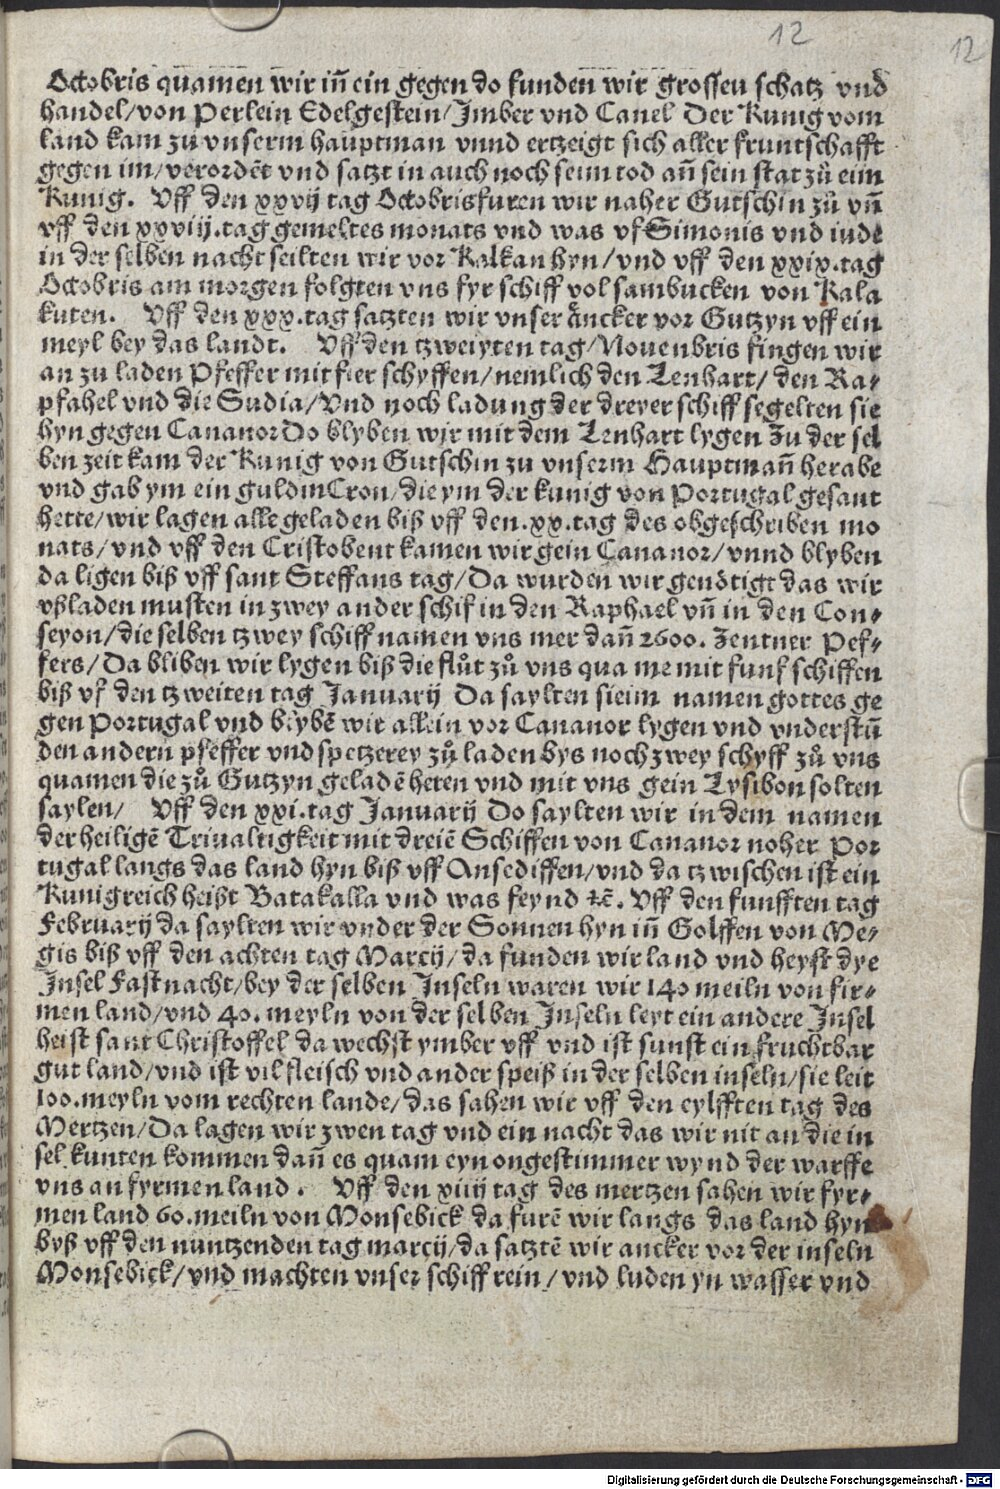 12
12
Octobris quamen wir iñ ein gegen do funden wir grossen schatz vnd
handel/von Perlein Edelgestein/Jmber vnd Canel Der Kunig vom
land kam zu vnserm hauptman vnnd ertzeigt sich aller fruntschafft
gegen im/verordēt vnd satzt in auch noch seim tod añ sein stat zů eim
Kunig. Vff den xxvij tag Octobrisfuren wir naher Gutschin zů vñ
vff den xxviij.tag gemeltes monats vnd was vf Simonis vnd iude
in der selben nacht seilten wir vor Kalkan hyn/vnd vff den xxix.tag
Octobris am morgen folgten vns fyr schiff vol sambucken von Kala
kuten. Vff den xxx.tag satzten wir vnser åncker vor Gutzyn vff ein
meyl bey das landt. Vff den tzweiyten tag/Nouenbris fingen wir
an zu laden Pfeffer mit fier schyffen/nemlich den Lenhart/den Ra-
pfahel vnd die Sudia/Vnd noch ladung der dreyer schiff segelten sie
hyn gegen Cananor Do blyben wir mit dem Lenhart lygen Zu der sel
ben zeit kam der Kunig von Gutschin zu vnserm Hauptmañ herabe
vnd gab ym ein guldin Cron/die ym der kunig von Portugal gesant
hette/wir lagen alle geladen biß vff den.xx.tag des obgeschriben mo
nats/vnd vff den Cristobent kamen wir gein Cananor/vnnd blyben
da ligen biß vff sant Steffans tag/Da wurden wir genötigt das wir
vßladen musten in zwey ander schif in den Raphael vñ in den Con-
seyon/die selben tzwey schiff namen vns mer dañ 2600. Zentner Pef-
fers/Da bliben wir lygen biß die flůt zů vns qua me mit funf schiffen
biß vf den tzweiten tag Januarij Da saylten sieim namen gottes ge
gen Portugal vnd blybē wir allein vor Cananor lygen vnd vnderstū
den andern pfeffer vnd spetzerey zů laden bys noch zwey schyff zů vns
quamen die zů Gutzyn geladē heten vnd mit vns gein Lysibon solten
saylen/ Vff den xxi.tag Januarij Do saylten wir in dem namen
der heiligē Triualtigkeit mit dreiē Schiffen von Cananor noher Por
tugal langs das land hyn biß vff Ansediffen/vnd da tzwischen ist ein
Kunigreich heißt Batakalla vnd was feynd ꝛc̄. Vff den funfften tag
Februarij da saylten wir vnder der Sonnen hyn iñ Golffen von Me-
gis biß vff den achten tag Marcij/da funden wir land vnd heyst dye
Jnsel Fastnacht/bey der selben Jnseln waren wir 140 meiln von fir-
men land/vnd 40. meyln von der selben Jnseln leyt ein andere Jnsel
heist sant Christoffel da wechst ymber vff vnd ist sunst ein fruchtbar
gut land/vnd ist vil fleisch vnd ander speiß in der selben inseln/sie leit
100.meyln vom rechten lande/das sahen wir vff den eylfften tag des
Mertzen/Da lagen wir zwen tag vnd ein nacht das wir nit an die in
sel kunten kommen dañ es quam eyn ongestimmer wynd der warffe
vns an fyrmen land. Vff den xiiij tag des mertzen sahen wir fyr-
men land 60.meiln von Monsebick da furē wir langs das land hyn
byß vff den nuntzenden tag marcij/da satztē wir ancker vor der inseln
Monsebick/vnd machten vnser schiff rein/vnd luden yn wasser vnd
Digitalisierung gefördert durch die Deutsche Forschungsgemeinschaft - DFG